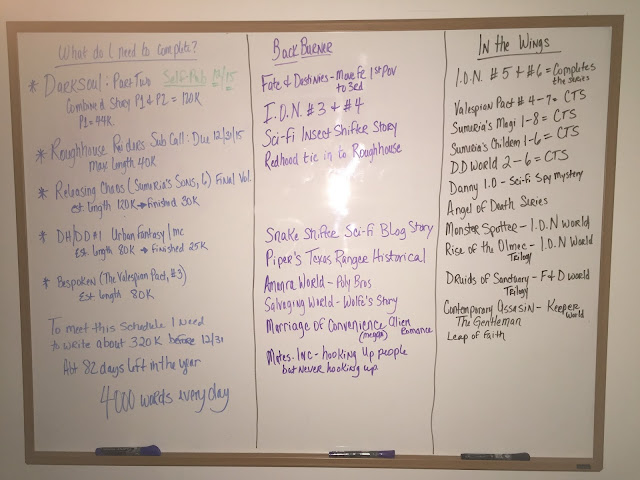 What do I need to complete?
* DARKSOUL: PART TWO Self-Pub 12/15
Combined Story P1 & P2 = 120K
P1 = 44K
* Roughhouse Raiders Sub Call: Due 12/31/15
Max length 40K
* Releasing Chaos (Sumuria's Sons, 6) Final Vol.
est. length 120K → finished 30K
* DH/DD#1 Urban Fantasy/mc
Est. length 80K → finished 25K
* Bespoken (The Valespian Pact, #3)
Est length 80K
To meet this schedule I need
to write about 320K before 12/31
Abt 82 days left in the year
4000 words every day
Back Burner
Fate & Destinies - Move Fr 1st POV
to 3rd
I.O.N. #3 & #4
Sci-Fi Insect Shifter Story
Redhood tie in to Roughhouse
Snake Shifter Sci-Fi Blog Story
Piper's Texas Ranger Historical
Amanra World - Poly Bros
Salvaging World - Wolfe's Story
Marriage of Convenience Alien
(mégga) Romance
Mates. Inc - hooking up people
but never hooking up
In the Wings
I.O.N. #5 & #6 = Completes
the series
Valespian Pact #4-7 = CTS
Sumuria's Magi 1-8 = CTS
Sumuria's Children 1-6 = CTS
DD World 2-6 = CTS
Danny 1.0 - Sci-Fi Spy Mystery
Angel of Death Series
Monster Spotter - I.O.N World
Rise of the Olmec - I.O.N World
Trilogy
Druids of Sanctuary - F&D World
Trilogy
Contemporary Assasin - Keeper
The Gentleman World
Leap of Faith